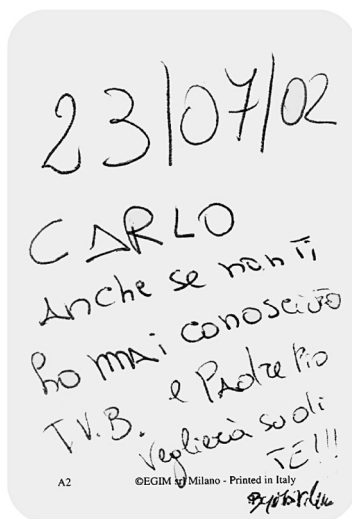 23/07/02
CARLO
Anche se non Ti
ho mai conosciuto
T.V.B. e Padre Pio
Veglierà su di
TE!!!
A2 ©EGIM srl Milano - Printed in Italy